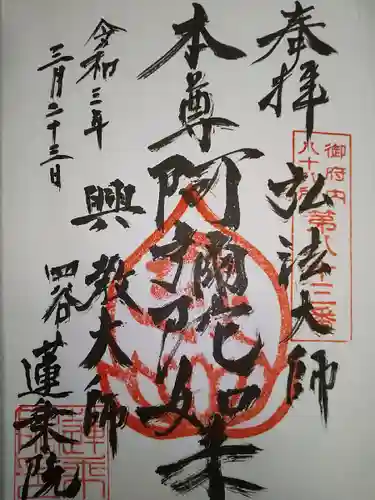 奉拝
弘法大師
御府内
八十八ヶ所
第八十三番
本尊阿弥陀如来
興教大師
令和三年
三月二十三日
四谷
蓮乗院